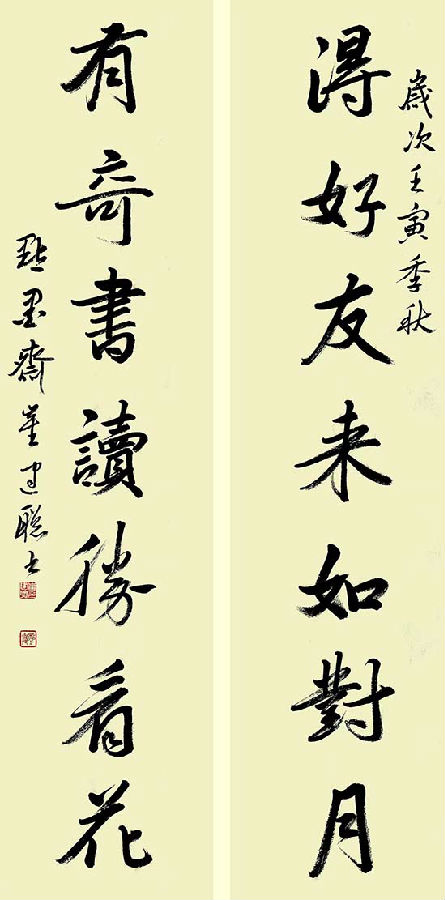 歲次壬寅季秋
得好友来如對月
有奇書讀勝看花
點墨齋董建聰书